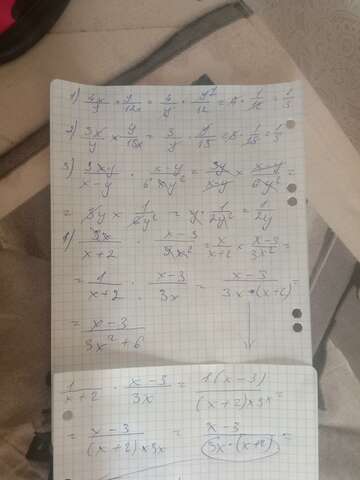 1) 4x/y × y/12x = 4/y · y/12 = 4 · 1/12 = 1/3
2) 3x/y × y/15x = 3/y · y/15 = 3 · 1/15 =
3) 3xy/x-y · x-y/6xy² = 3y/x-y × x-y/6y² =
= 3y × 1/6y² = y · 1/2y² = 1/2y
x+2 · x-3 = x/x+2 × x-3/3x² =
= 1/x+2 · x-3/3x = x-3/3x·(x+2) =
= x-3/3x²+6
1/x+2 · x-3/3x = 1(x-3)/(x+2)×3x =
= x-3/(x+2)×3x = x-3/3x·(x+2) =